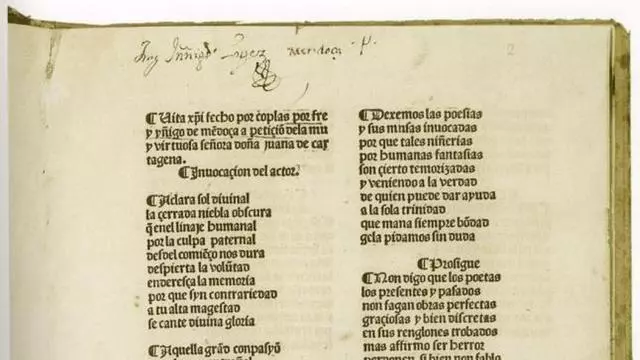 Fray Ynnigo Lopez Mendoça
2
¶Uita xp̄i fecho por coplas por fre
y yñigo de mẽdoça a peticiõ dela mu
y virtuosa señora doña juana de car
tagena.
¶Inuocacion del actor.
¶Aclara sol diuinal
la çerrada niebla obscura
q̃ enel linaje humanal
por la culpa paternal
desdel comiẽço nos dura
despierta la volũtad
endereſça la memoria
por que syn contrariedad
a tu alta magestad
se cante diuina gloria
¶Aquella grãd conpasyõ
¶Dexemos las poesias
y sus musas inuocadas
por que tales niñerias
por humanas fantasias
son çierto temorizadas
y veniendo a la verdad
de quien puede dar ayuda
a la sola trinidad
que mana siempre bõdad
gela pidamos sin duda
¶Prosigue
¶Non digo que los poetas
los presentes y pasados
non fagan obras perfectas
graçiosas y bien discretas
en sus renglones trobados
mas affirmo ser herror
perdonen si bien non fablo